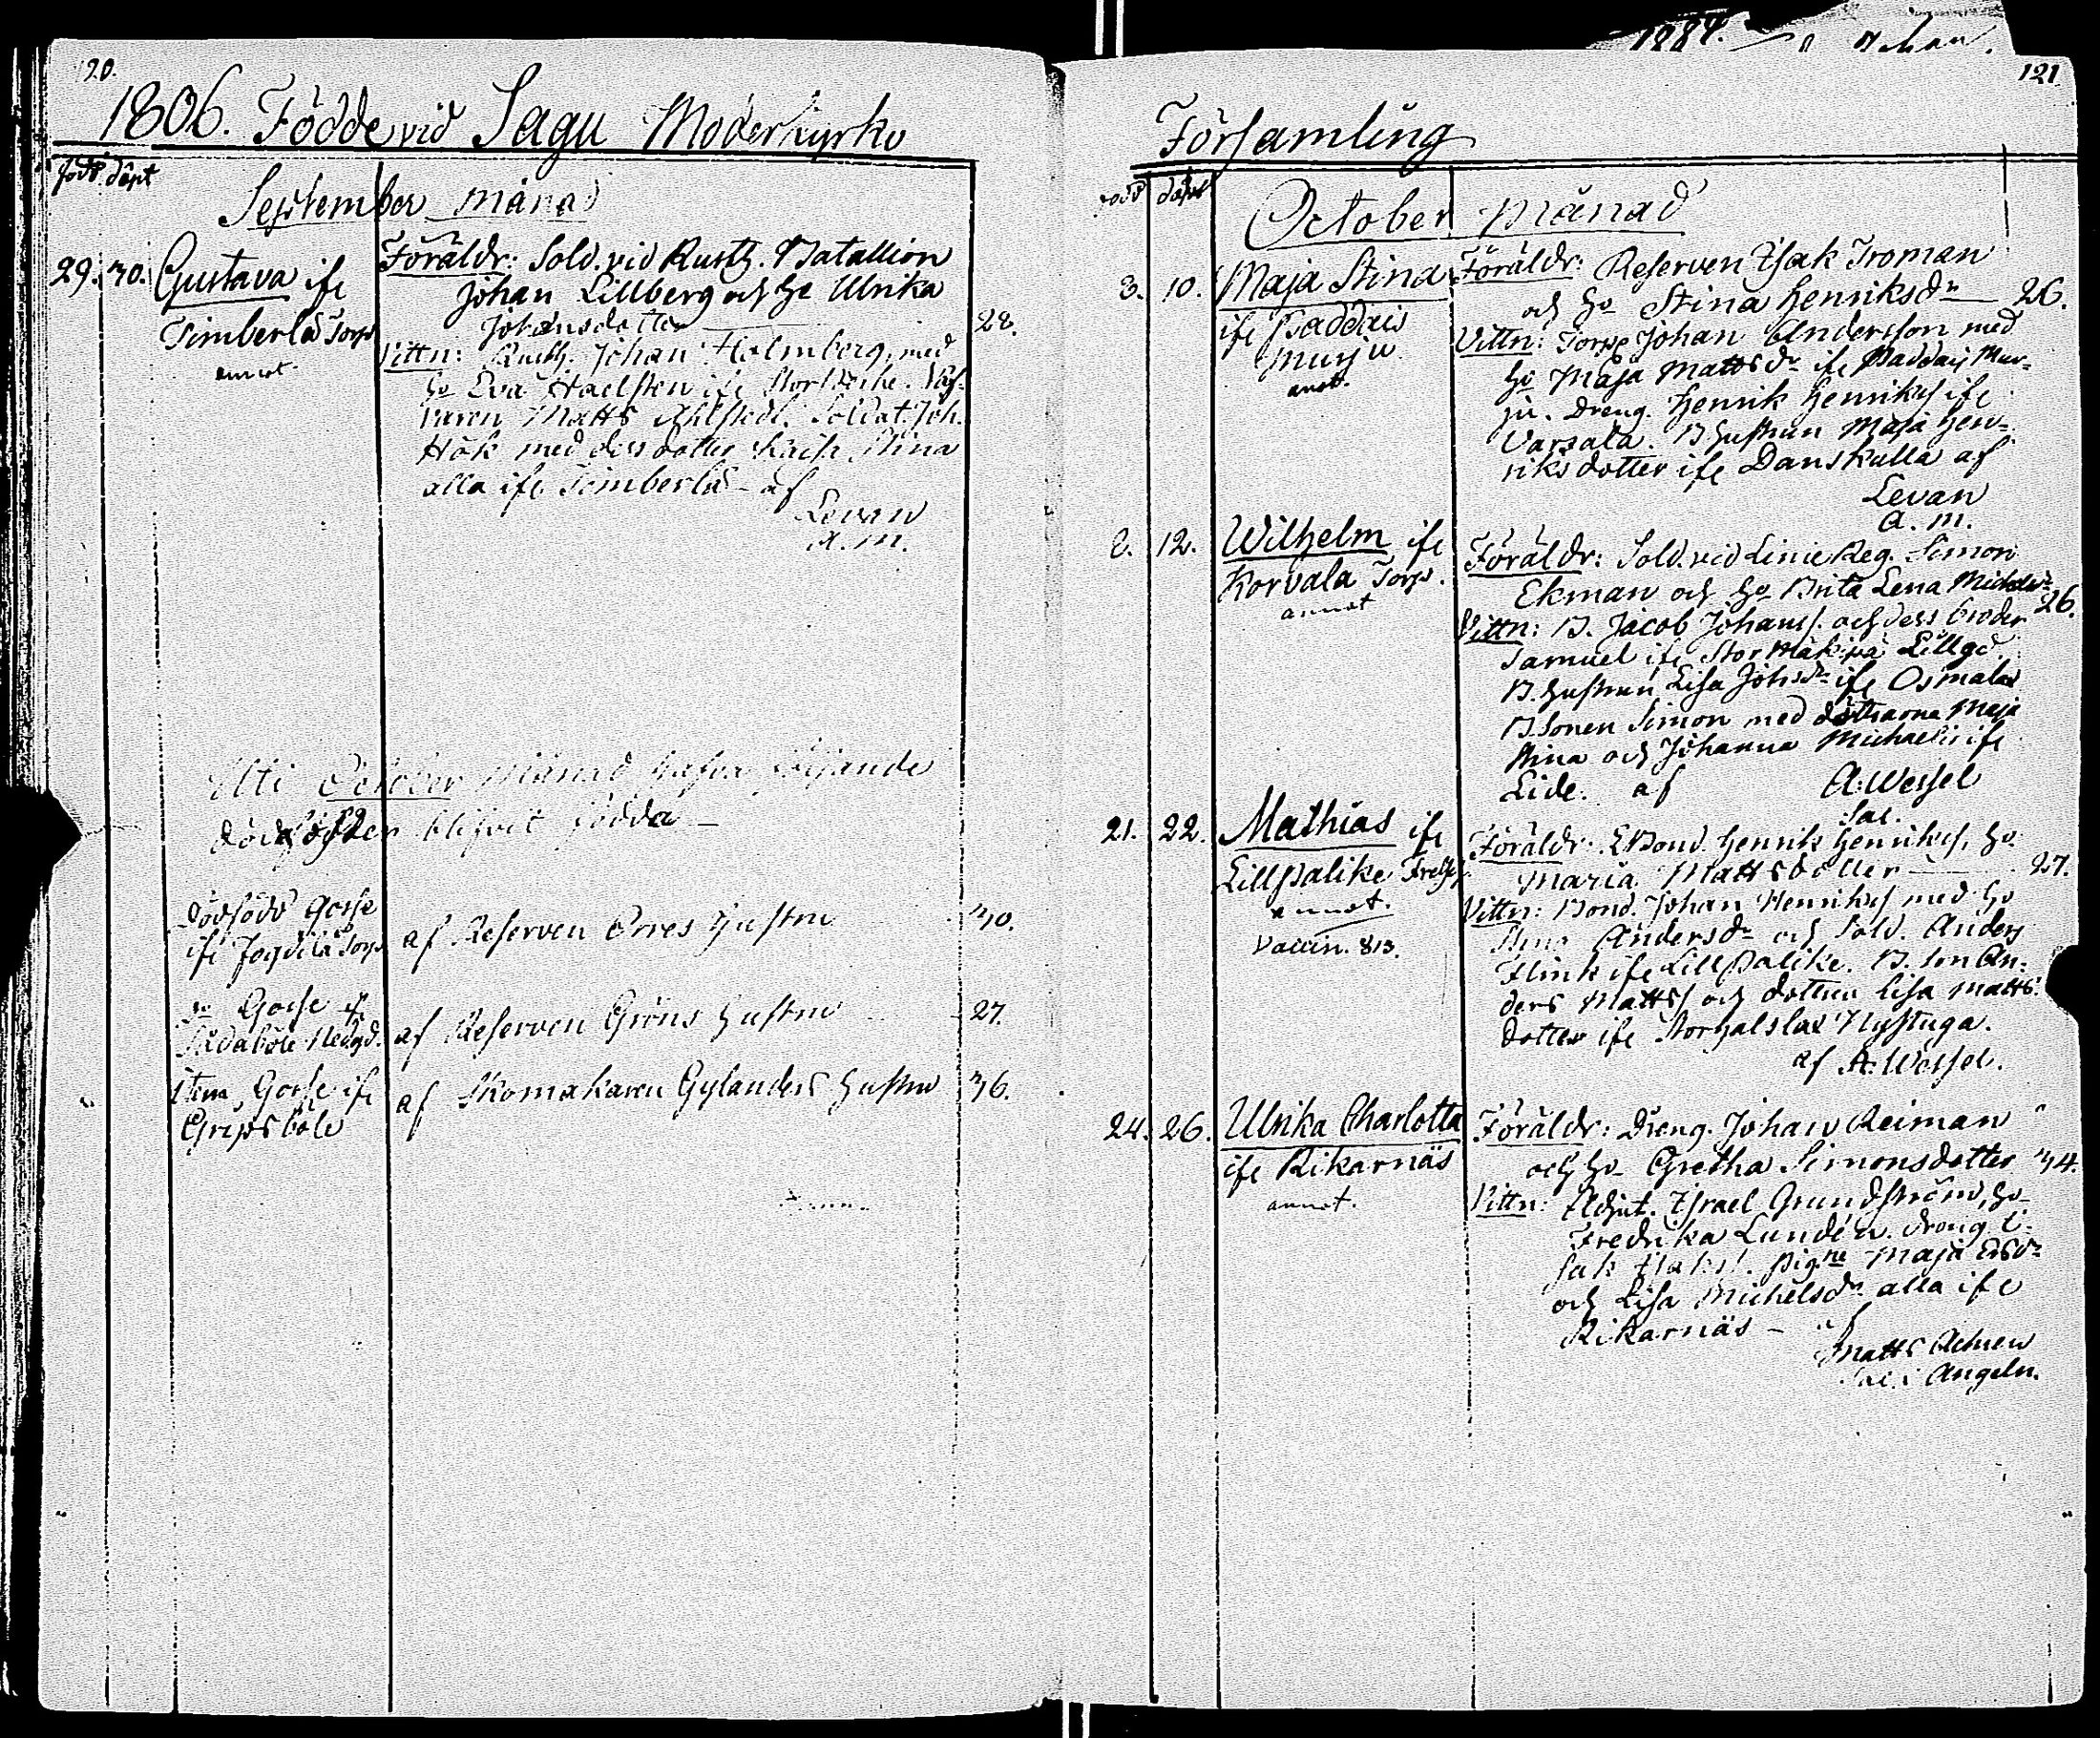 120.
1806. Födde vid Sagu Moderkyrko
född döpt
September månad
29. 30. Gustava ifr
Timberla Torp
annot.
Föräldr: Sold. vid Rusth. Batallion
Johan Lillberg och h:o Ulrika
Johansdotter 28.
Vittn: Rusth. Johan Holmberg, med
h:o Eva
Matts Ahlstedt. Soldat. Joh.
Hök med dess dotter Stina
alla ifr. Timberla af
Levan
a. m.
Uti October Månad hafva följande
blifvit födda
Dödfödd Gosse
ifr Torp af Reserven Orres hustru 30.
D:o Gosse ifr
Sådabole Nedgd. af Reserven Gröns hustru 27.
Item, Gosse ifr
Gripsböle af Skomakaren Gylanders hustru 36.
1284.
121
Församling
född döpt
October månad
3. 10. Maja Stina
ifr Paddais
Murju
annot.
Föräldr: Reserven Isak Troman
och h:o Stina Henriksdr 26.
Vittn: Torp. Johan Andersson med
h:o Maja Mattsdr ifr Paddais Mur-
ju. Dreng. Henrik Henrikss ifr
Varsala. B. hustrun Maja Hen-
riksdotter ifr Danskulla af
Levan
a. m.
8. 12. Wilhelm ifr
Korvala Torp.
annot
Föräldr: Sold. vid Linie Reg. Simon
Ekman och h:o Brita Lena Michelsdr 26.
Vittn: B. Jacob Johanss. och dess broder
Samuel ifr Stor Lillgd.
B. hustrun Lisa Johsdr ifr Osmalax
B. Sonen Simon med döttrarna Maja
Stina och Johanna Michaelis ifr
Lide. af A. Wessel
Sac.
21. 22. Mathias ifr
Lillpalike Frelse
annot.
Vaccin. 813.
Föräldr: Bond. Henrik Henrikss, h:o
Maria Mattsdotter 27.
Vittn: Bond. Johan Henrikss med h:o
Stina Andersdr och Sold. Anders
Flink ifr Lillpalike. B. Son An-
ders Mattss och dottren Lisa Matts-
dotter ifr Storhalslax Nystuga.
af A. Wessel.
24. 26. Ulrika Charlotta
ifr Rikarnäs
annot.
Föräldr: Dreng. Johan Reiman
och h:o Gretha Simonsdotter 34.
Vittn: Adjut. Israel Grundström, h:o
Fredrika Lundén. Dreng. I-
sak Isakss. Pig:ne Maja Ersdr
och Lisa Michelsdr alla ifr
Rikarnäs – af
Matts
Sac. i Angeln.